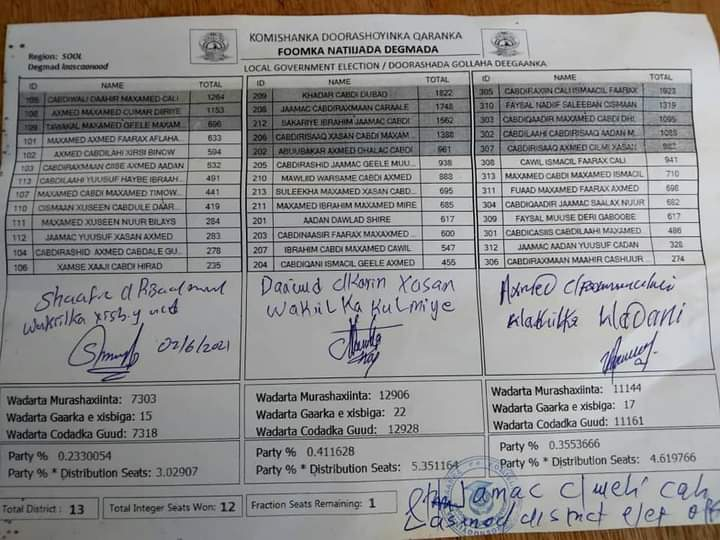 KOMISHANKA DOORASHOYINKA QARANKA
FOOMKA NATIIJADA DEGMADA
Region: SOOL
Degmad laascaanood
LOCAL GOVERNMENT ELECTION / DOORASHADA GOLLAHA DEEGAANKA
ID NAME TOTAL
105 CABDIWALI DAAHIR MAXAMED CALI 1264
108 AXMED MAXAMED CUMAR DIRIYE 1153
109 TAWAKAL MAXAMED GEELE MAXAM... 696
101 MAXAMED AXMED FAARAX AFLAHA... 633
102 AXMED CABDILAHI XIRSI BINDW 594
103 CABDIRAXMAAN CIISE AXMED AADAN 532
113 CABDILAAHI YUUSUF HAYBE IBRAAH... 491
107 MAXAMED CABDI MAXAMED TIMOW... 441
110 CISMAAN XUSEEN CABDULE DAAR... 419
111 MAXAMED XUSEEN NUUR BILAYS 284
112 JAAMAC YUUSUF XASAN AXMED 283
104 CABDIRASHID AXMED CABDALE GU... 278
106 XAMSE XAAJI CABDI HIRAD 235
ID NAME TOTAL
209 KHADAR CABDI DUBAD 1822
208 JAAMAC CABDIRAXMAAN CARAALE 1748
212 SAKARIYE IBRAHIM JAAMAC CABDI 1562
206 CABDIRISAAQ XASAN CABDI MAXAM... 1388
202 ABUUBAKAR AXMED DHALAC CABDI 961
205 CABDIRASHID JAAMAC GEELE MUU... 938
210 MAWLIID WARSAME CABDI AXMED 888
213 SULEEKHA MAXAMED XASAN CABD... 695
211 MAXAMED IBRAHIM MAXAMED MIRE 685
201 AADAN DAWLAD SHIRE 617
203 CABDINAASIR FAARAX MAXAXMED ... 600
207 IBRAHIM CABDI MAXAMED CAWIL 547
204 CABDIQANI ISMACIL GEELE AXMED 455
ID NAME TOTAL
305 CABDIRAXIIN CALI ISMACIIL FAARAX 1923
310 FAYSAL NADIIF SALEEBAN CISMAAN 1319
303 CABDIQAADIR MAXAMED CABDI DHI... 1095
302 CABDILAAHI CABDIRISAAQ AADAN M... 1085
307 CABDIRISAAQ AXMED CILMI XASAN 982
308 CAWIL ISMACIIL FAARAX CALI 941
313 MAXAMED CABDI MAXAMED ISMACIL 710
311 FUAAD MAXAMED FAARAX AXMED 698
304 CABDIQAADIR JAMAAC SAALAX NUUR 682
309 FAYSAL MUUSE DERI GABOOBE 617
301 CABDICASIIS CABDILAAHI MAXAMED 486
312 JAMAC AADAN YUUSUF CADAN 328
306 CABDIRAXMAAN MAAHIR CASHUUR... 274
wakiilka xisb.y ucid
02/6/2021
Daaiud clkarin Xosan
wakiilka kulmiye
Axmed
wakiilka Wadani
Wadarta Murashaxiinta: 7303
Wadarta Gaarka e xisbiga: 15
Wadarta Codadka Guud: 7318
Wadarta Murashaxiinta: 12906
Wadarta Gaarka e xisbiga: 22
Wadarta Codadka Guud: 12928
Wadarta Murashaxiinta: 11144
Wadarta Gaarka e xisbiga: 17
Wadarta Codadka Guud: 11161
Party % 0.2330054
Party % * Distribution Seats: 3.02907
Party % 0.411628
Party % * Distribution Seats: 5.351164
Party % 0.3553666
Party % * Distribution Seats: 4.619766
Total District : 13 Total Integer Seats Won: 12 Fraction Seats Remaining: 1
Jamac c/weli cab
Lasanod district elet off